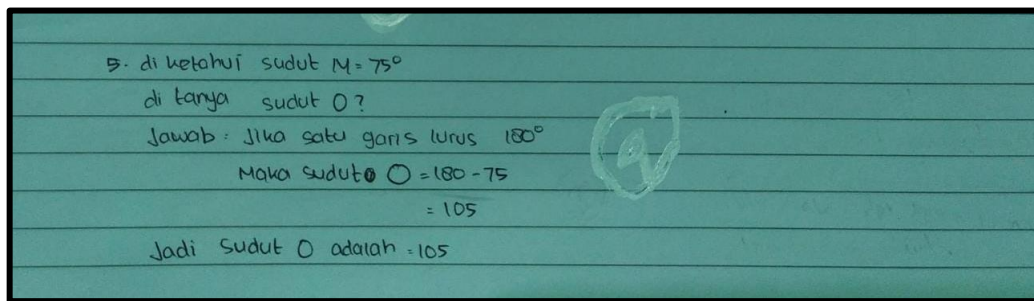 5. di ketahui sudut M = 75°
di tanya sudut O?
Jawab : Jika satu garis lurus 180°
Maka sudut O = 180 - 75
= 105
Jadi sudut O adalah = 105